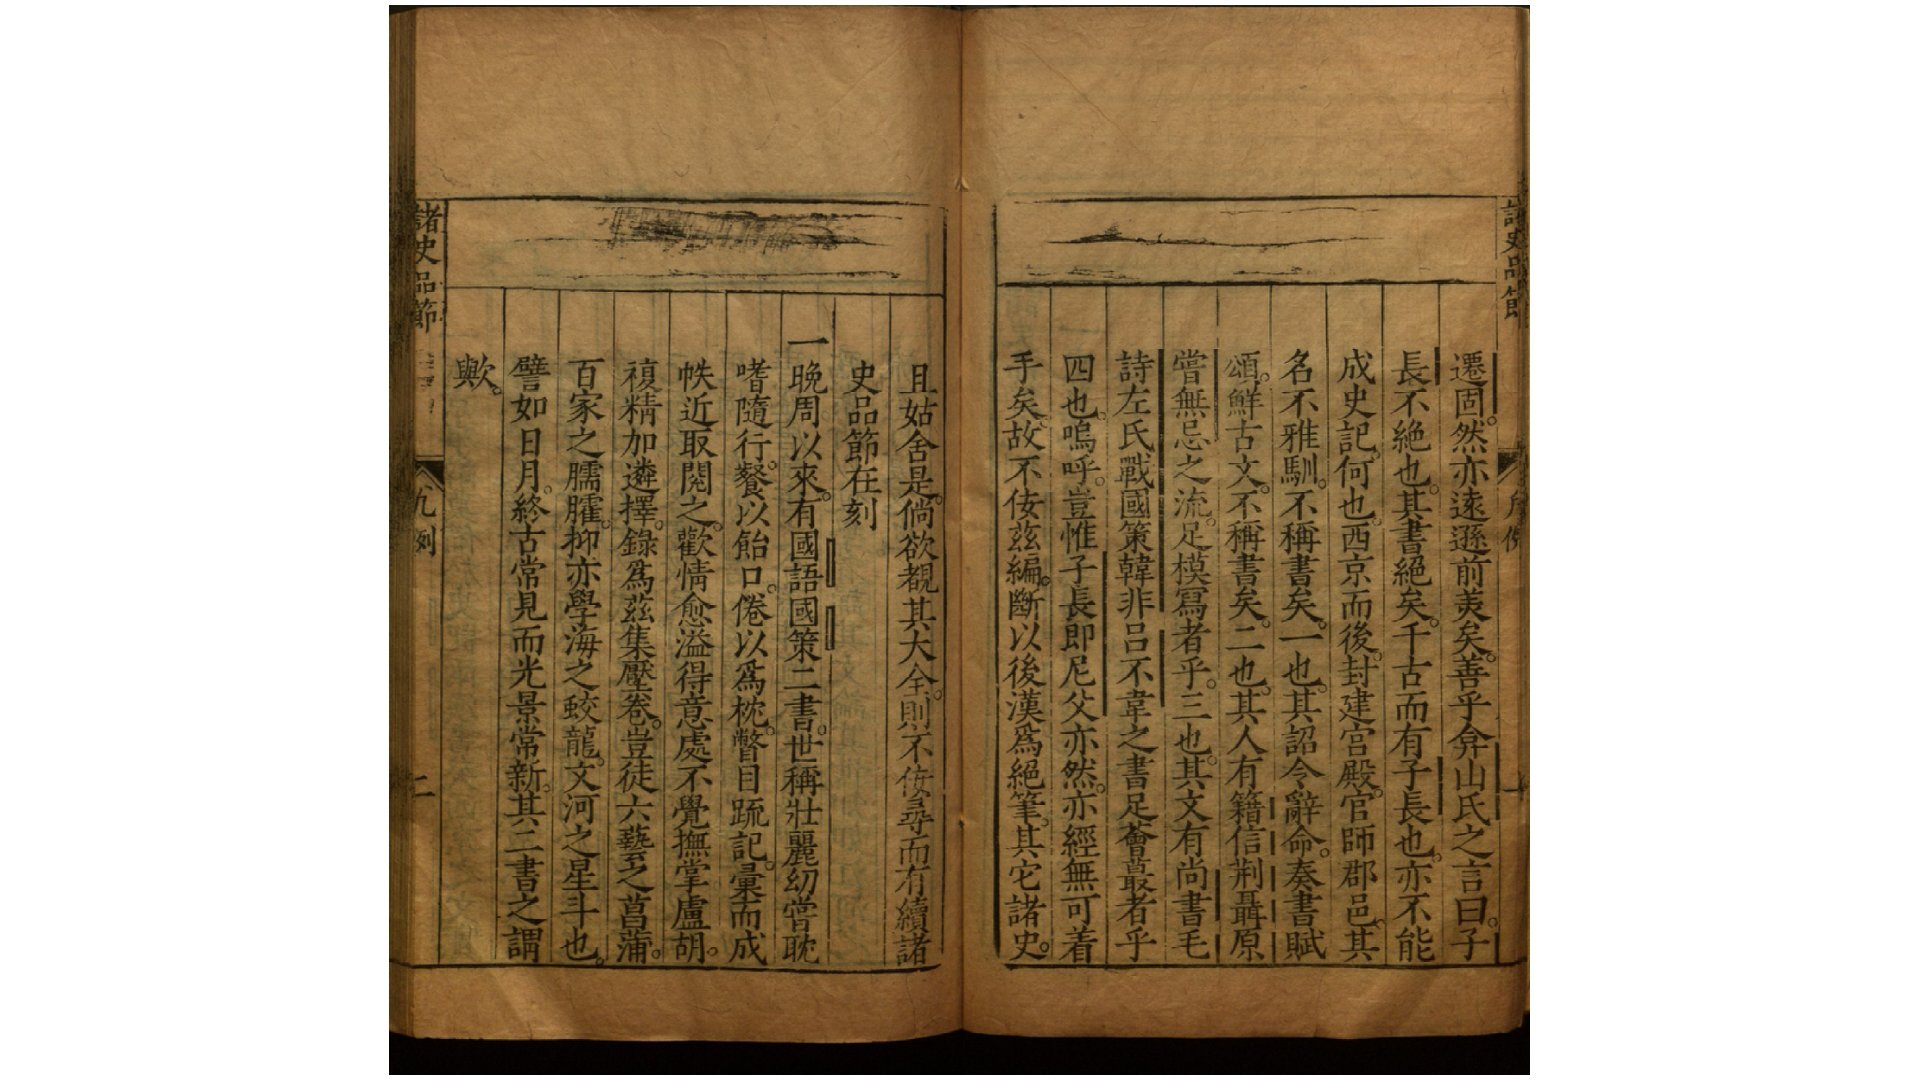 遷固。然亦遠遜前羙矣。善乎弇山氏之言曰。子
長不絶也。其書絕矣。千古而有子長也。亦不能
成史記。何也。西京而後。封建宮殿。官師郡邑。其
名不雅馴。不稱書矣。一也。其詔令辭命。奏書賦
頌。鮮古文。不稱書矣。二也。其人有籍信荆聶原
嘗無忌之流。足模寫者乎。三也。其文有尚書毛
詩左氏戰國策韓非吕不韋之書足薈蕞者乎
四也。嗚呼。豈惟子長即尼父亦然。亦經無可着
手矣。故不佞茲編。斷以後漢爲絕筆。其它諸史。
且姑舍是。倘欲覩其大全。則不佞尋而有續諸
史品節在刻
一晚周以來。有國語國策二書。世稱壯麗幼嘗耽
嗜隨行。餐以飴口。倦以爲枕。瞥目䟽記。彙而成
帙近取閱之。歡情愈溢得意處不覺撫掌盧胡。
複精加遴擇。錄爲茲集壓卷。豈徒六藝之菖蒲。
百家之臑臛。抑亦學海之蛟龍。文河之星斗也。
譬如日月。終古常見而光景常新。其二書之謂
歟。
諸史品節
凡例
二